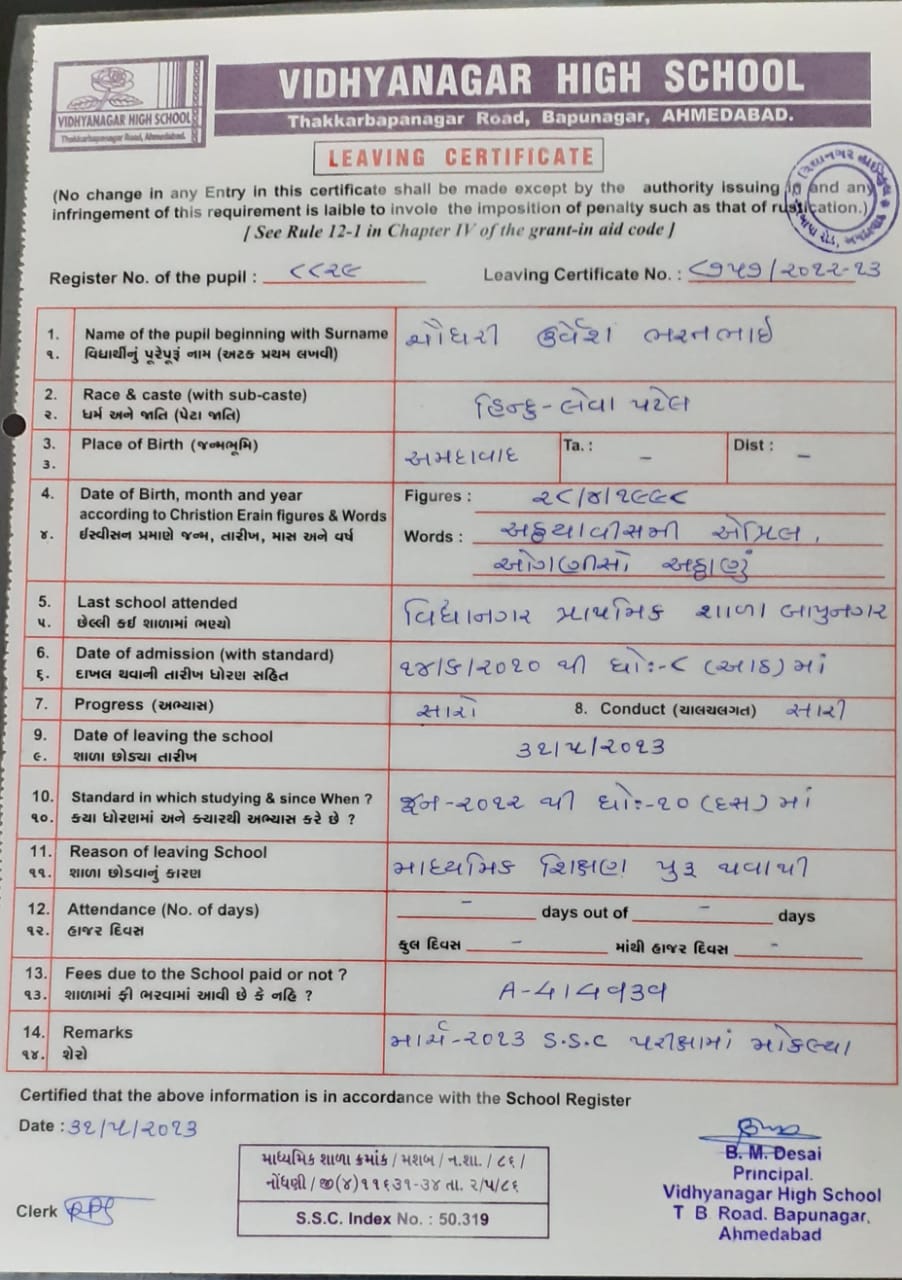 VIDHYANAGAR HIGH SCHOOL
Thakkarbapanagar Road, Ahmedabad.
VIDHYANAGAR HIGH SCHOOL
Thakkarbapanagar Road, Bapunagar, AHMEDABAD.
LEAVING CERTIFICATE
(No change in any Entry in this certificate shall be made except by the authority issuing in and any
infringement of this requirement is laible to invole the imposition of penalty such as that of rustication.)
[ See Rule 12-1 in Chapter IV of the grant-in aid code ]
Register No. of the pupil : ૮૮૨૯ Leaving Certificate No. : ૮૧૫૧/૨૦૧૨-૧૩
1. Name of the pupil beginning with Surname ચૌધરી ઉર્વેશ ભરતભાઇ
૧. વિદ્યાર્થીનું પૂરેપૂરૂં નામ (અટક પ્રથમ લખવી)
2. Race & caste (with sub-caste) હિન્દુ-લેવા પટેલ
૨. ધર્મ અને જાતિ (પેટા જાતિ)
3. Place of Birth (જન્મભૂમિ) અમદાવાદ Ta. : - Dist : -
૩.
4. Date of Birth, month and year Figures : ૨૮/૪/૧૯૯૮
according to Christion Erain figures & Words
૪. ઈસ્વીસન પ્રમાણે જન્મ, તારીખ, માસ અને વર્ષ Words : અઠ્ઠયાવીસમી એપ્રિલ,
ઓગણીસો અઠ્ઠાણું
5. Last school attended વિદ્યાનગર પ્રાથમિક શાળા બાપુનગર
૫. છેલ્લી કઈ શાળામાં ભણ્યો
6. Date of admission (with standard) ૧૪/૬/૨૦૧૦ થી ધોઃ-૮ (આઠ) માં
૬. દાખલ થવાની તારીખ ધોરણ સહિત
7. Progress (અભ્યાસ) સારો 8. Conduct (ચાલચલગત) સારી
9. Date of leaving the school ૩૧/૫/૨૦૧૩
૯. શાળા છોડ્યા તારીખ
10. Standard in which studying & since When ? જૂન-૨૦૧૨ થી ધોઃ-૧૦ (દસ) માં
૧૦. ક્યા ધોરણમાં અને ક્યારથી અભ્યાસ કરે છે ?
11. Reason of leaving School માધ્યમિક શિક્ષણ પુરૂ થવાથી
૧૧. શાળા છોડવાનું કારણ
12. Attendance (No. of days) - days out of - days
૧૨. હાજર દિવસ કુલ દિવસ - માંથી હાજર દિવસ -
13. Fees due to the School paid or not ? A-414939
૧૩. શાળામાં ફી ભરવામાં આવી છે કે નહિ ?
14. Remarks માર્ચ-૨૦૧૩ S.S.C પરીક્ષામાં મોકલ્યા
૧૪. શેરો
Certified that the above information is in accordance with the School Register
Date : ૩૧/૫/૨૦૧૩
માધ્યમિક શાળા ક્રમાંક / મશબ / ન.શા. / ૮૬ /
નોંધણી / જી(૪)૧૧૬૩૧-૩૪ તા. ૨/૫/૮૬
S.S.C. Index No. : 50.319
Clerk
B. M. Desai
Principal.
Vidhyanagar High School
T B Road. Bapunagar,
Ahmedabad